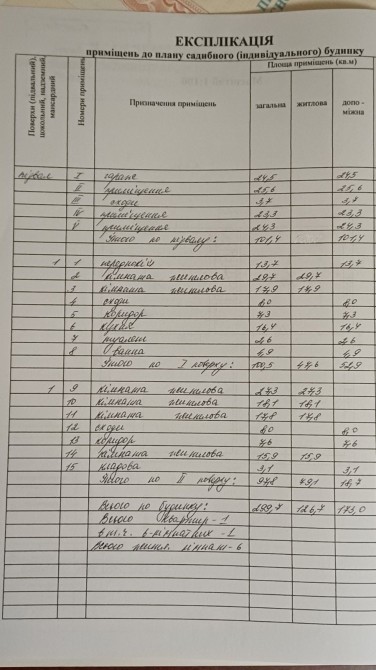 ЕКСПЛІКАЦІЯ
приміщень до плану садибного (індивідуального) будинку
Поверхи (підвальний, цокольний, надземний, мансардний)
Номери приміщень
Призначення приміщень
Площа приміщень (кв.м)
загальна житлова допо - міжна
підвал I гараж 24,5 24,5
II приміщення 25,6 25,6
III сходи 3,7 3,7
IV приміщення 23,3 23,3
V приміщення 24,3 24,3
Этого по підвалу: 101,4 101,4
1 1 передпокій 13,7 13,7
2 кімната житлова 29,7 29,7
3 кімната житлова 17,9 17,9
4 сходи 8,0 8,0
5 коридор 7,3 7,3
6 кухня 16,4 16,4
7 туалет 2,6 2,6
8 ванна 4,9 4,9
Этого по I поверху: 100,5 47,6 52,9
1 9 кімната житлова 27,3 27,3
10 кімната житлова 18,1 18,1
11 кімната житлова 17,8 17,8
12 сходи 8,0 8,0
13 коридор 7,6 7,6
14 кімната житлова 15,9 15,9
15 кладова 3,1 3,1
Этого по II поверху: 97,8 79,1 18,7
Всього по будинку: 299,7 126,7 173,0
Всього квартир - 1
в т.ч. 6-кімнатних - 1
Всього житл. кімнат - 6